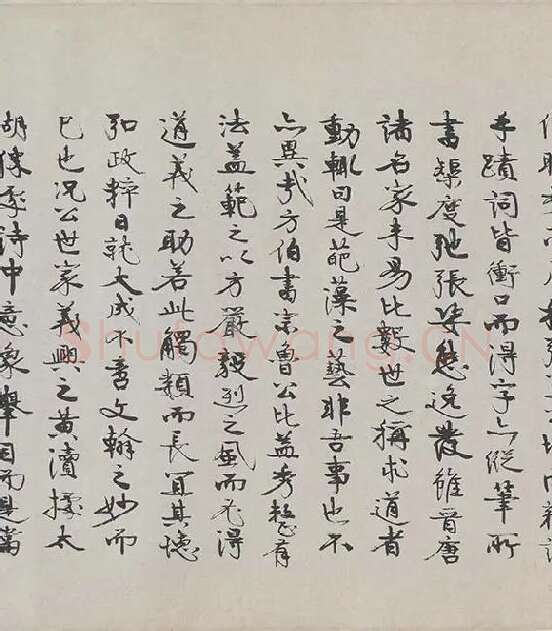 手蹟詞皆衝口而得字亦縱筆所
書榘度弛張姿態逸發雖晉唐
諸名家未易比數世之稱求道者
動輒曰是葩藻之藝非吾事也不
亦異哉方伯書宗魯公比益秀整有
法蓋範之以方嚴毅烈之風而尤得
道義之助若此觸類而長宜其德
弘政粹日就大成不啻文翰之妙而
已也況公世家義興之黃瀆據太
湖像季詩中意象舉目而是當
Shufawang.CN